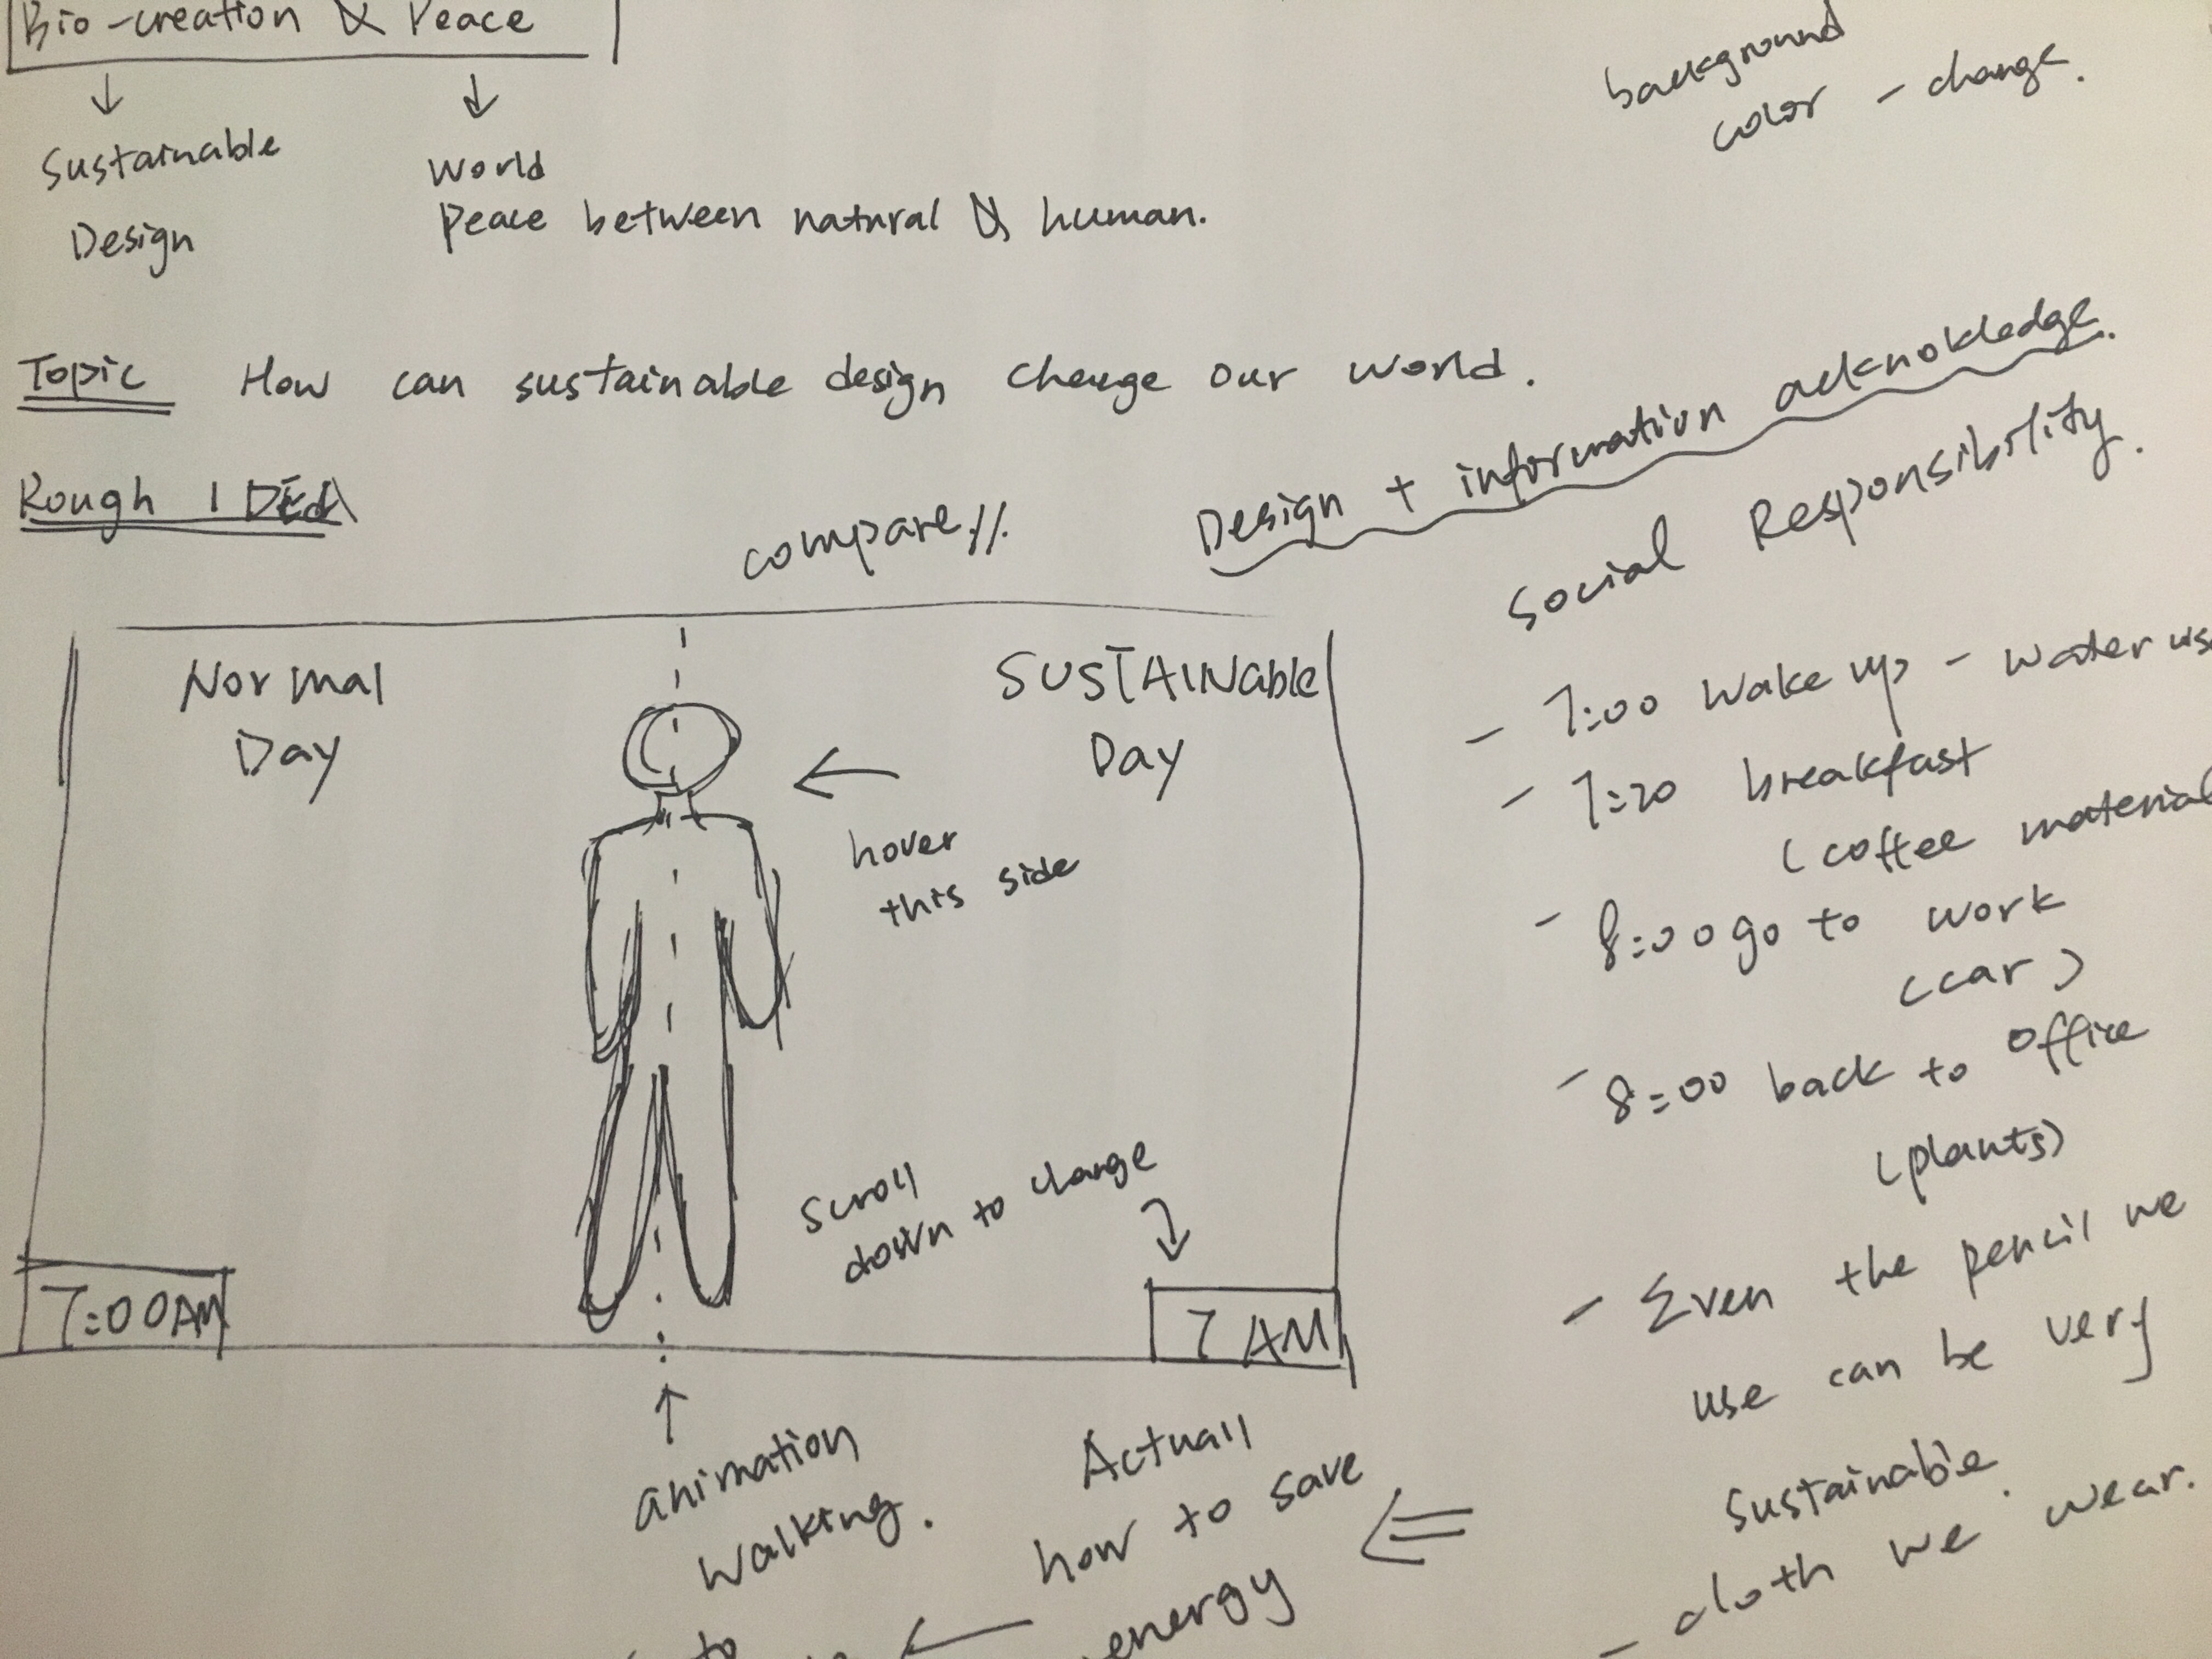 Bio-creation & Peace
Sustainable
Design
World
Peace between natural & human.
background
color - change.
Topic How can sustainable design change our world.
Rough IDEA
compare
Design + information acknokledge.
Social Responsibility.
Normal
Day
SUSTAINable
Day
hover
this side
scroll
down to change
7:00AM
7 AM
animation
walking.
Actuall
how to save
energy
to
- 7:00 wake up - water us
- 7:20 breakfast
(coffee material
- 8:00 go to work
(car)
- 8:00 back to office
(plants)
- Even the pencil we
use can be very
sustainable.
- cloth we wear.